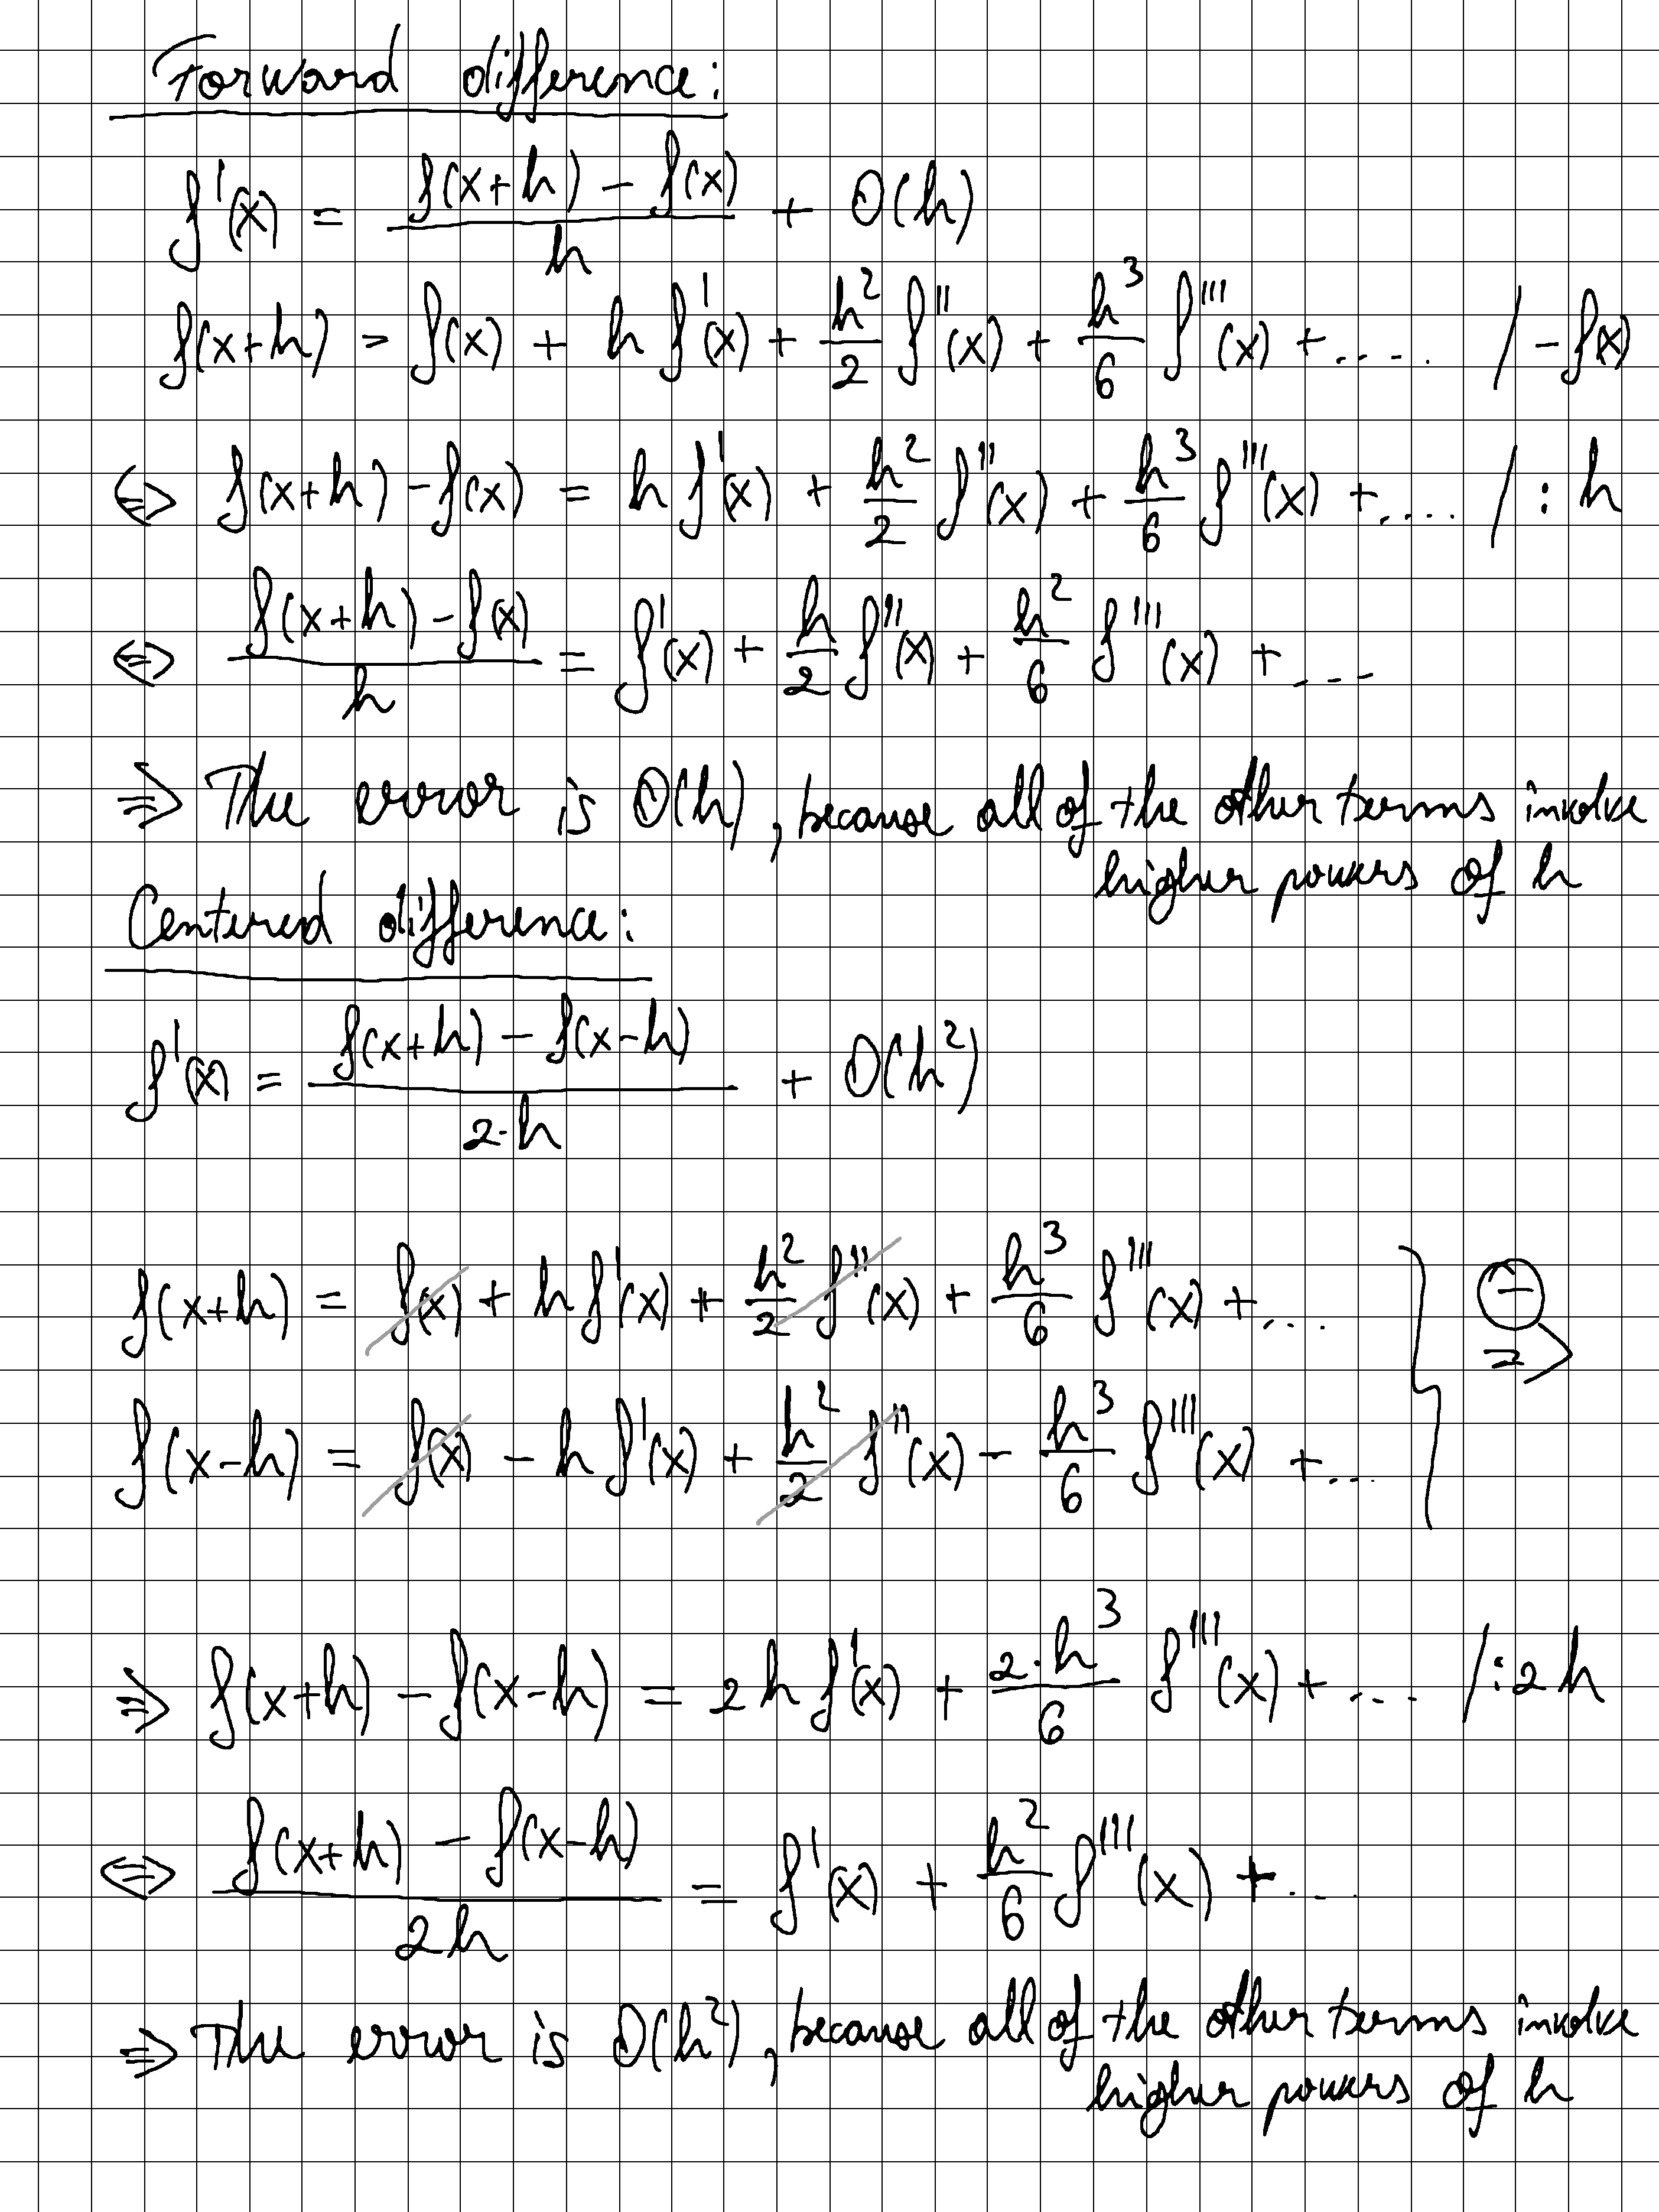 Forward difference:
f'(x) = (f(x+h) - f(x))/h + O(h)
f(x+h) = f(x) + h f'(x) + h²/2 f''(x) + h³/6 f'''(x) + ..... / -f(x)
⇔ f(x+h) - f(x) = h f'(x) + h²/2 f''(x) + h³/6 f'''(x) + ..... / : h
⇔ (f(x+h) - f(x))/h = f'(x) + h/2 f''(x) + h²/6 f'''(x) + ....
⇒ The error is O(h), because all of the other terms involve
higher powers of h
Centered difference:
f'(x) = (f(x+h) - f(x-h))/(2·h) + O(h²)
f(x+h) = f(x) + h f'(x) + h²/2 f''(x) + h³/6 f'''(x) + .... } ⊖ ⇒
f(x-h) = f(x) - h f'(x) + h²/2 f''(x) - h³/6 f'''(x) + ....
⇒ f(x+h) - f(x-h) = 2 h f'(x) + (2·h³)/6 f'''(x) + .... / : 2 h
⇔ (f(x+h) - f(x-h))/(2h) = f'(x) + h²/6 f'''(x) + ....
⇒ The error is O(h²), because all of the other terms involve
higher powers of h